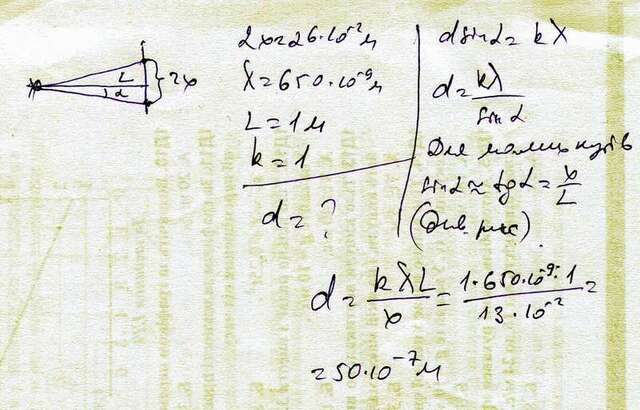 L
α
2x
2x=26·10⁻²м
λ=650·10⁻⁹м
L=1м
k=1
d=?
dsinα=kλ
d=kλ/sinα
Для малих кутів
sinα≈tgα=x/L
(Див. рис).
d=kλL/x=1·650·10⁻⁹·1/13·10⁻²=
=50·10⁻⁷м